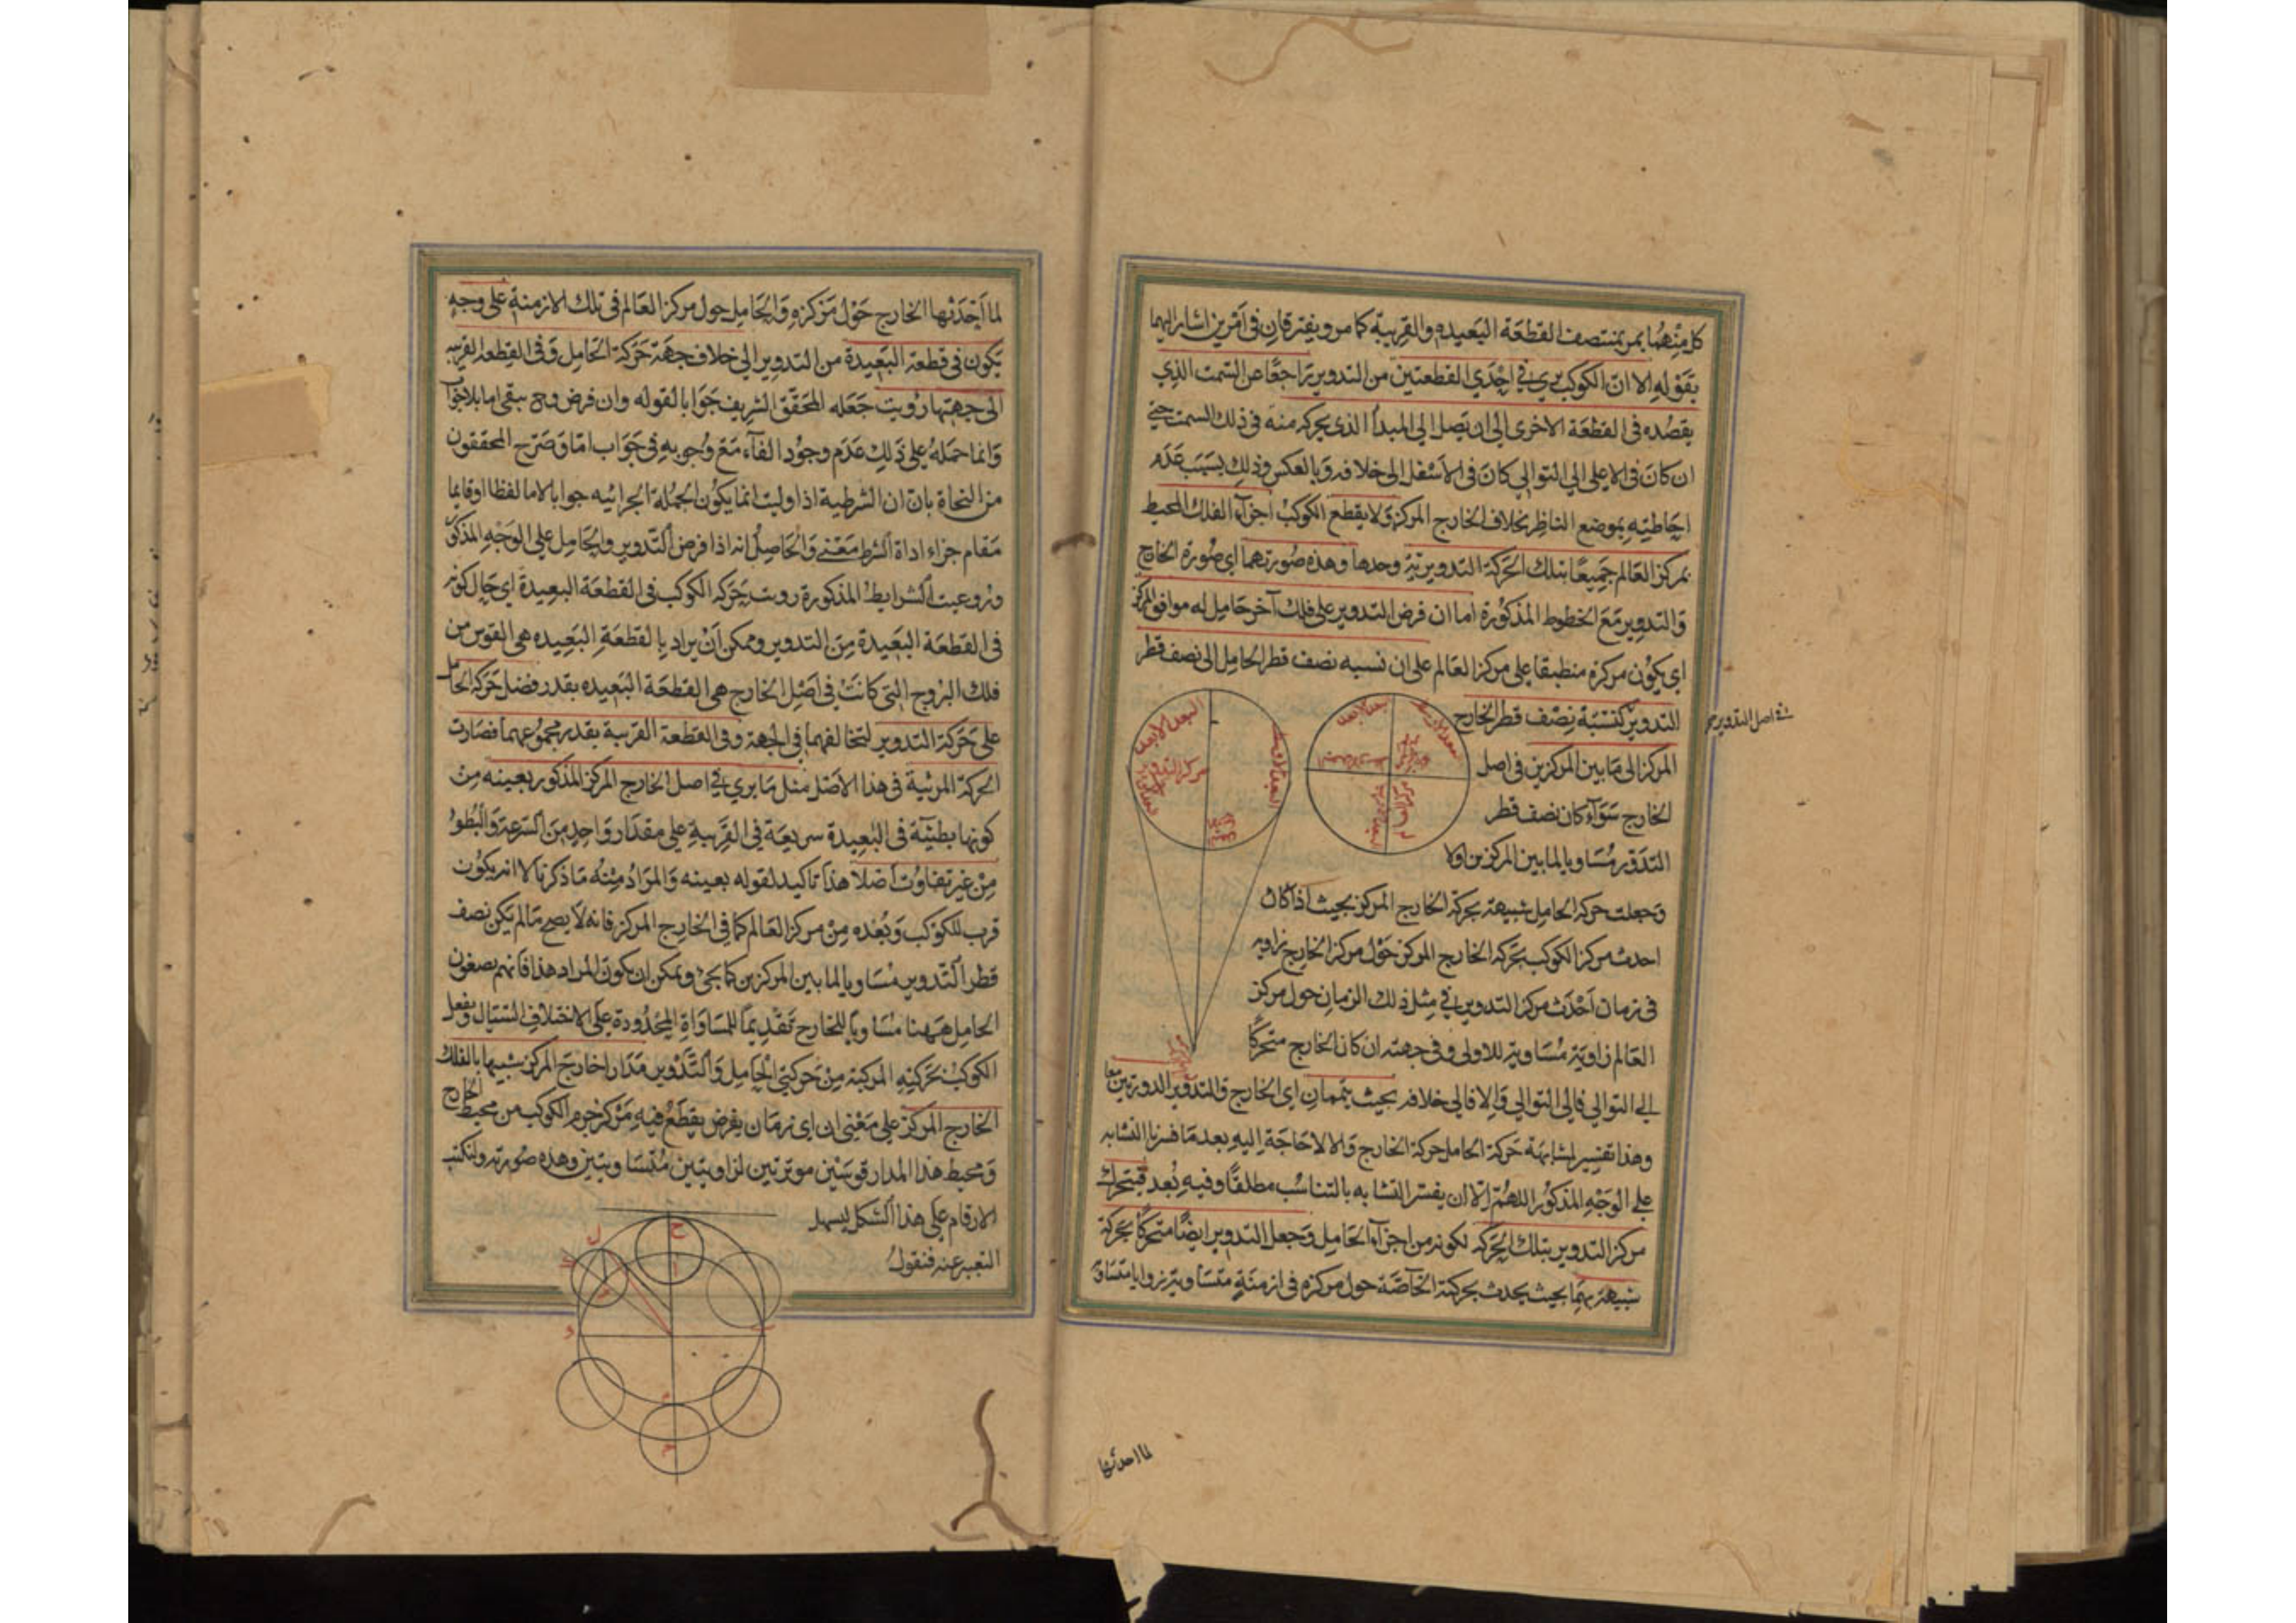 كل منهما يمر بمنتصف القطعة البعيده والقريبة كما مر ويفترقان في امرين اشار اليهما
بقوله الا ان الكوكب يرى في احدي القطعتين من التدوير تراجعًا عن السمت الذي
يقصده في القطعة الاخرى الى ان يصل الى المبدأ الذى يحركه منه في ذلك السمت حتى
ان كان في الاعلى الي التوالي كان في الاسفل الى خلافه وبالعكس وذلك بسبب عدم
احاطته بموضع الناظر بخلاف الخارج المركز ولا يقطع الكوكب اجزآء الفلك المحيط
بمركز العالم جميعًا بتلك الحركة التدويرية وحدها وهذه صورتهما اي صورة الخارج
والتدوير مع الخطوط المذكورة اما ان فرض التدوير على فلك آخر حامل له موافق المركز
اي يكون مركزه منطبقا على مركز العالم على ان نسبه نصف قطر الحامل الى نصف قطر
التدوير كنسبة نصف قطر الخارج
اصل التدوير
المركز الى ما بين المركزين في اصل
الخارج سوآء كان نصف قطر
التدوير مساويا لما بين المركزين اولا
البعد الابعد
مركز التدوير
وجعلت حركه الحامل شبيهة بحركة الخارج المركز بحيث اذا كان
احدث مركز الكوكب بحركه الخارج المركز حول مركز الخارج زاويه
في زمان احدث مركز التدوير في مثل ذلك الزمان حول مركز
العالم زاوية مساوية للاولى وفي جهته ان كان الخارج متحركًا
الى التوالي فالى التوالي والا فالي خلافه بحيث يتممان اي الخارج والتدوير الدورتين معا
وهذا تفسير لمشابهة حركة الحامل حركة الخارج والا لا حاجة اليه بعد ما فسرنا التشابه
على الوجه المذكور اللهم الا ان يفسر التشابه بالتناسب مطلقًا وفيه بعد فيتحرك
مركز التدوير بتلك الحركه لكونه من اجزآء الحامل وجعل التدوير ايضًا متحركًا بحركة
شبيهة بهما بحيث يحدث بحركته الخاصّة حول مركزه في ازمنة متساوية زوايا متساوية
لما احدثها
لما احدثها الخارج حول مركزه والحامل حول مركز العالم في تلك الازمنة على وجه
يكون في قطعة البعيدة من التدوير الى خلاف جهة حركة الحامل وفي القطعة القريبه
الى جهتها رويت جعله المحقق الشريف جوابا لقوله وان فرض وح يبقى اما بلا جواب
وانما حمله على ذلك عدم وجود الفآء مع وجوبه في جواب اما وصرح المحققون
من النحاة بان ان الشرطية اذا وليت انما يكون الجملة الجزائيه جوابا لاما لفظا او قايما
مقام جزاء اداة الشرط معنى والحاصل انه اذا فرض التدوير والحامل على الوجه المذكور
وروعيت الشرايط المذكورة رويت حركه الكوكب في القطعة البعيدة اي حال كونه
في القطعة البعيدة من التدوير ويمكن ان يراد بالقطعة البعيده هي القوس من
فلك البروج التي كانت في اصل الخارج هي القطعة البعيده بقدر فضل حركة الحامل
على حركة التدوير لتخالفهما في الجهة وفي القطعة القريبة بقدر مجموعهما فصارت
الحركة المرئية في هذا الاصل مثل ما يري في اصل الخارج المركز المذكور بعينه من
كونها بطيئة في البعيدة سريعة في القريبة على مقدار واحد من السرعة والبطؤ
من غير تفاوت اصلا هذا تاكيد لقوله بعينه والمراد منه ما ذكرنا لا انه يكون
قرب للكوكب وبعده من مركز العالم كما في الخارج المركز فانه لا يصح ما لم يكن نصف
قطر التدوير مساويا لما بين المركزين كما يجئ ويمكن ان يكون المراد هذا فانهم يصغون
الحامل ههنا مساويا للخارج تقديما للمساواة على الاختلاف ويفعل
الكوكب بحركته المركبة من حركتي الحامل والتدوير مدارا خارج المركز شبيها بالفلك
الخارج المركز على معنى ان اى زمان يفرض يقطع فيه مركز جرم الكوكب من محيط الخارج
ومحيط هذا المدار قوسين موترتين لزاويتين متساويتين وهذه صورته ولنكتب
الارقام على هذا الشكل ليسهل
التعبير عنه فنقول
ح
ل
د